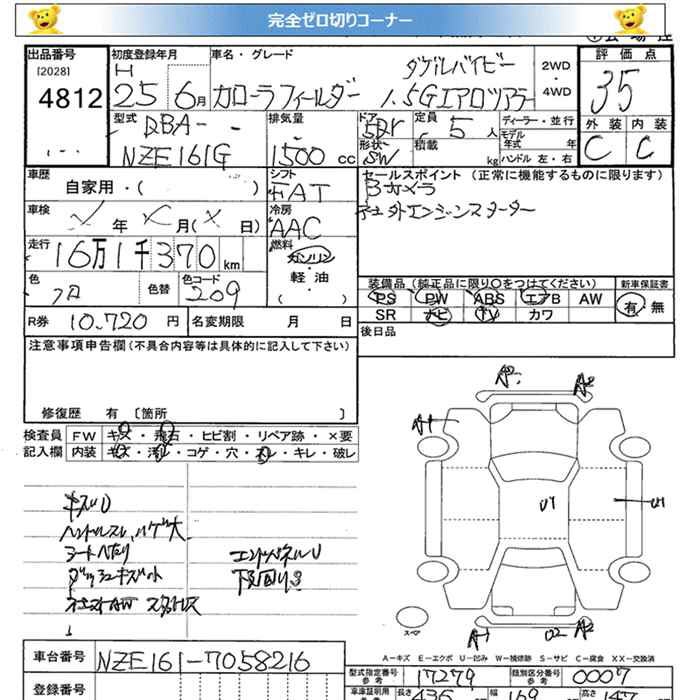 完全ゼロ切りコーナー
出品番号 初度登録年月 車名・グレード 評価点
[2028] H ダブルバイビー 2WD
4812 25 6月 カローラフィールダー 1.5Gエアロツアラー 4WD 35
型式 排気量 ドア 定員 ディーラー・並行 外装 内装
DBA- 5Dr 5人 モデル年式 年 C C
NZE161G 1500cc 形状 SW 積載 kg ハンドル 左・右
車歴 シフト セールスポイント (正常に機能するものに限ります)
自家用・( ) FAT Bカメラ
車検 年 月( 日) 冷房 AAC エンジンスターター
走行 燃料
16万1千370km ガソリン
色 色替 色コード 軽・油 装備品 (純正品に限り○をつけてください) 新車保証書
209 ( ) PS PW ABS エアB AW 有・無
R券 10.720円 名変期限 月 日 SR ナビ TV カワ
注意事項申告欄(不具合内容等は具体的に記入して下さい) 後日品
修復歴 有 〔箇所 〕
検査員 FW キズ・飛石・ヒビ割・リペア跡・×要
記入欄 内装 キズ・汚レ・コゲ・穴・スレ・キレ・破レ
A2 A1 U1 U1
キズU
ハンドルスレ、ハゲ大
シートヘたり エンドパネルU
ダッシュキズ小 下回りS
スタッドレス
A1 U2 A2
スペア
A－キズ E－エクボ U－凹み W－補修跡 S－サビ C－腐食 XX－交換済
車台番号 NZE161-7058216 型式指定番号 参考 17279 類別区分番号 参考 0007
登録番号 車庫証明用 参考 長さ 436 幅 169 高さ 147